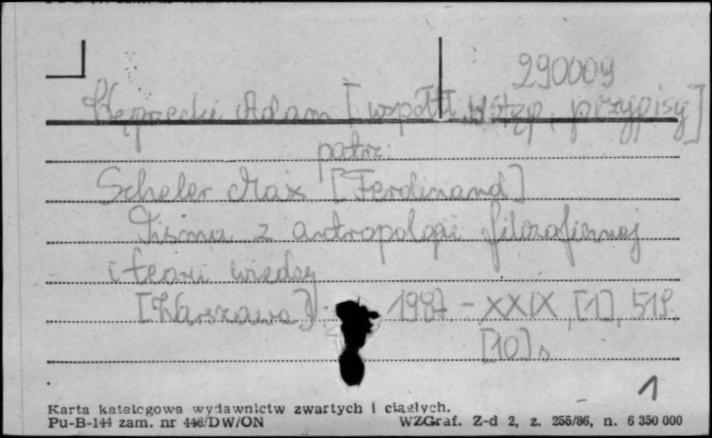 290009
Węgrzecki Adam [współtł., wstęp, przypisy]
patrz:
Scheler Max [Ferdinand]
Pisma z antropologii filozoficznej
i teorii wiedzy
[Warszawa] 1987 - XXIX, [1], 519,
[10] s
1
Karta katalogowa wydawnictw zwartych i ciągłych.
Pu-B-144 zam. nr 446/DW/ON WZGraf. Z-d 2, z. 255/86, n. 6 350 000